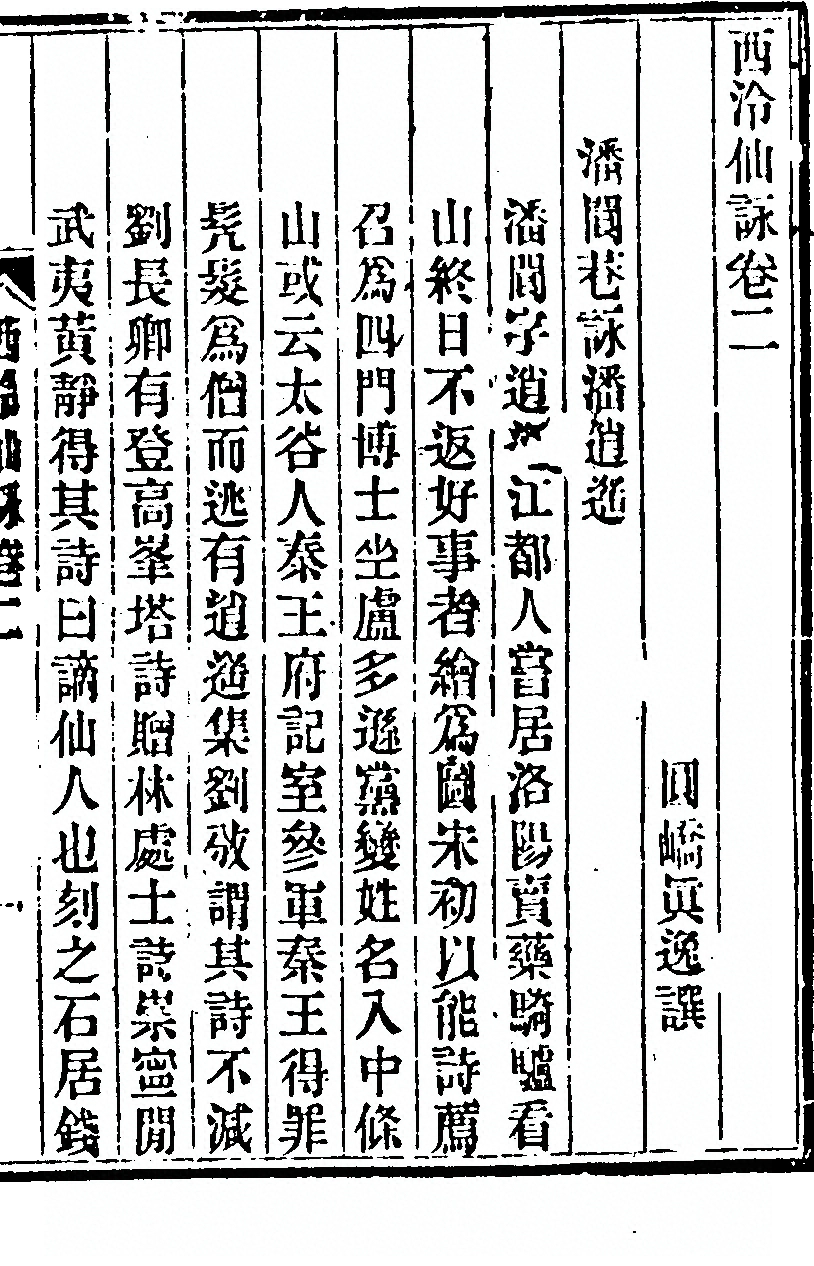 西泠仙詠卷二
圓嶠眞逸譔
潘閬巷詠潘逍遙
潘閬字逍 江都人嘗居洛陽賣藥騎驢看
山終日不返好事者繪爲圖宋初以能詩薦
召爲四門博士坐盧多遜黨變姓名入中條
山或云太谷人秦王府記室參軍秦王得罪
髡髮爲僧而逃有逍遙集劉攽謂其詩不減
劉長卿有登高峯塔詩贈林處士詩崇寧閒
武夷黃靜得其詩曰謫仙人也刻之石居錢
西泠仙詠卷二
一